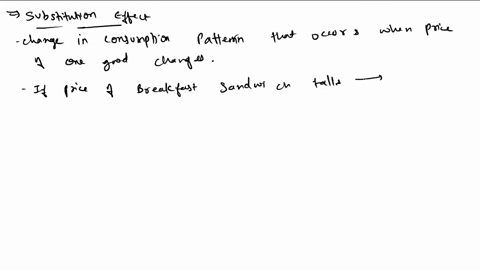 ⇒ Substitution Effect
- change in consumption Pattern that occurs when price
of one good changes.
- If price of Breakfast Sandwich falls →